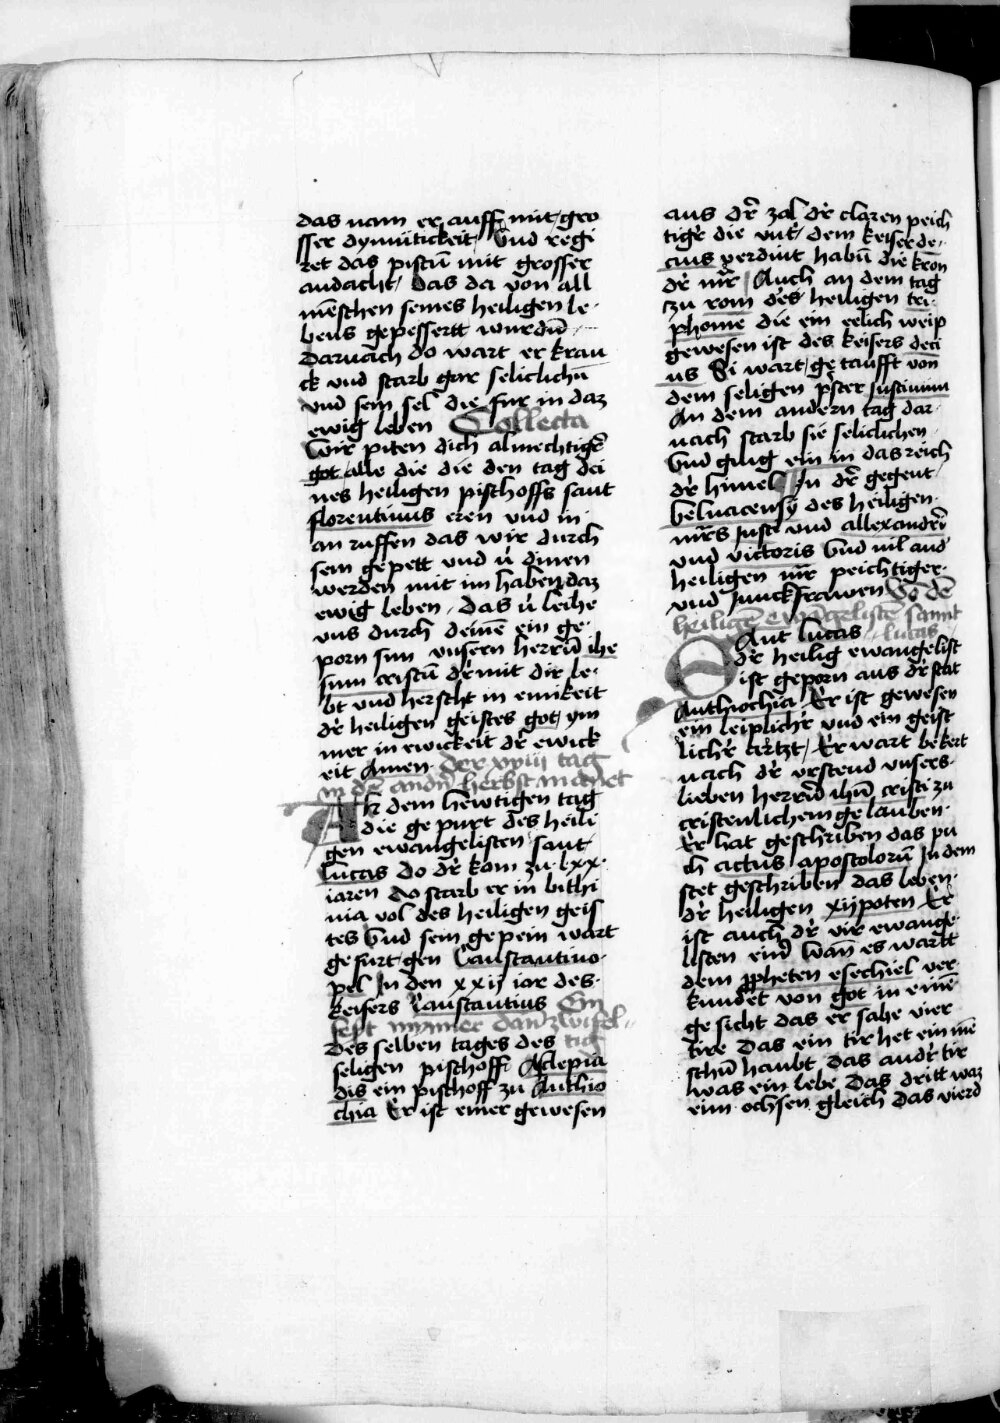 das nam er auff mit gro
sser dymütickeit Vnd regi
ret das pistū mit grosser
andacht / Das da von all
mēschen seines heiligen le-
bens gepessertt wurdū
Darnach do wart er kran
ck vnd starb gar seliclichū
vnd sein sel die fur in daz
ewig leben Collecta
Wir piten dich almechtigr̄
got alle die die den tag dei
nes heiligen pischoffs sant
florentinus eren vnd in
an ruffen das wir durch
sein gepett vnd ü dinen
werden mit im haben daz
ewig leben / Das ü leihe
vns durch deinē ein ge-
porn sun vnsern herrū ihe
sum cristū dr̄ mit dir le-
bt vnd herscht in einikeit
dr̄ heiligen geistes got ym
mer in ewickeit dr̄ ewick
eit Amen der xviij tag
in dē andn̄ herbst manet
An dem hewtigen tag
die ge purt des heili
gen ewangelisten sant
Lucas do dr̄ kam zu lxx
iaren do starb er in bithi
nia vol des heiligen geis
tes Vnd sein gepein wart
gefurt gen Canstantino-
pel In den xxij iar des
keisers Canstantius Ein
sept mynner dan zwifel-
Des selben tages des tig
seligen pischoff Asclepia
dis ein pischoff zu Anthio
chia Er ist einer gewesen
aus dr̄ zal dr̄ claren peich
tigr̄ die vnt̄ dem keiser de-
cius verdint habū die kron
dr̄ mr̄ Auch an dem tag
zu rom des heiligen tri-
phonie die ein erlich weip
gewesen ist des keisers deci
us Si wart ge taufft von
dem seligen p̄ster Justinum
An dem andern tag dar-
nach starb sie seliclichen
Vnd ging ein in das reich
dr̄ himel In dr̄ gegent
beluacensÿ des heiligen
mr̄s Justi vnd allexandri
vnd victoris Vnd vil and̄
heiligen mr̄ peichtiger
vnd Junckfrawen Vō dē
heiligē ewāgelistē sannt
Sant Lucas lucas
dr̄ heilig ewangelist
ist geporn aus dr̄ stat
Anthiochia Er ist gewesen
ein leiplichr̄ vnd ein geist
lichr̄ artzt / Er wart bekert
nach dr̄ vrstend vnsers
lieben herrū ihū cristi zu
cristenlichem gelauben
Er hat geschriben das pu
ch actus apostolorū In dem
stet geschriben das leben
dr̄ heiligen xijpoten Er
ist auch dr̄ vir ewange
listen ein Wan es wartt
dem ppheten esechiel ver-
kundet von got in einē
ge sicht das er sahe vier
tire Das ein tir het ein mē
schū haubt das andr̄ tir
was ein lebe Das dritt waz
einn ochsen gleich das vierd